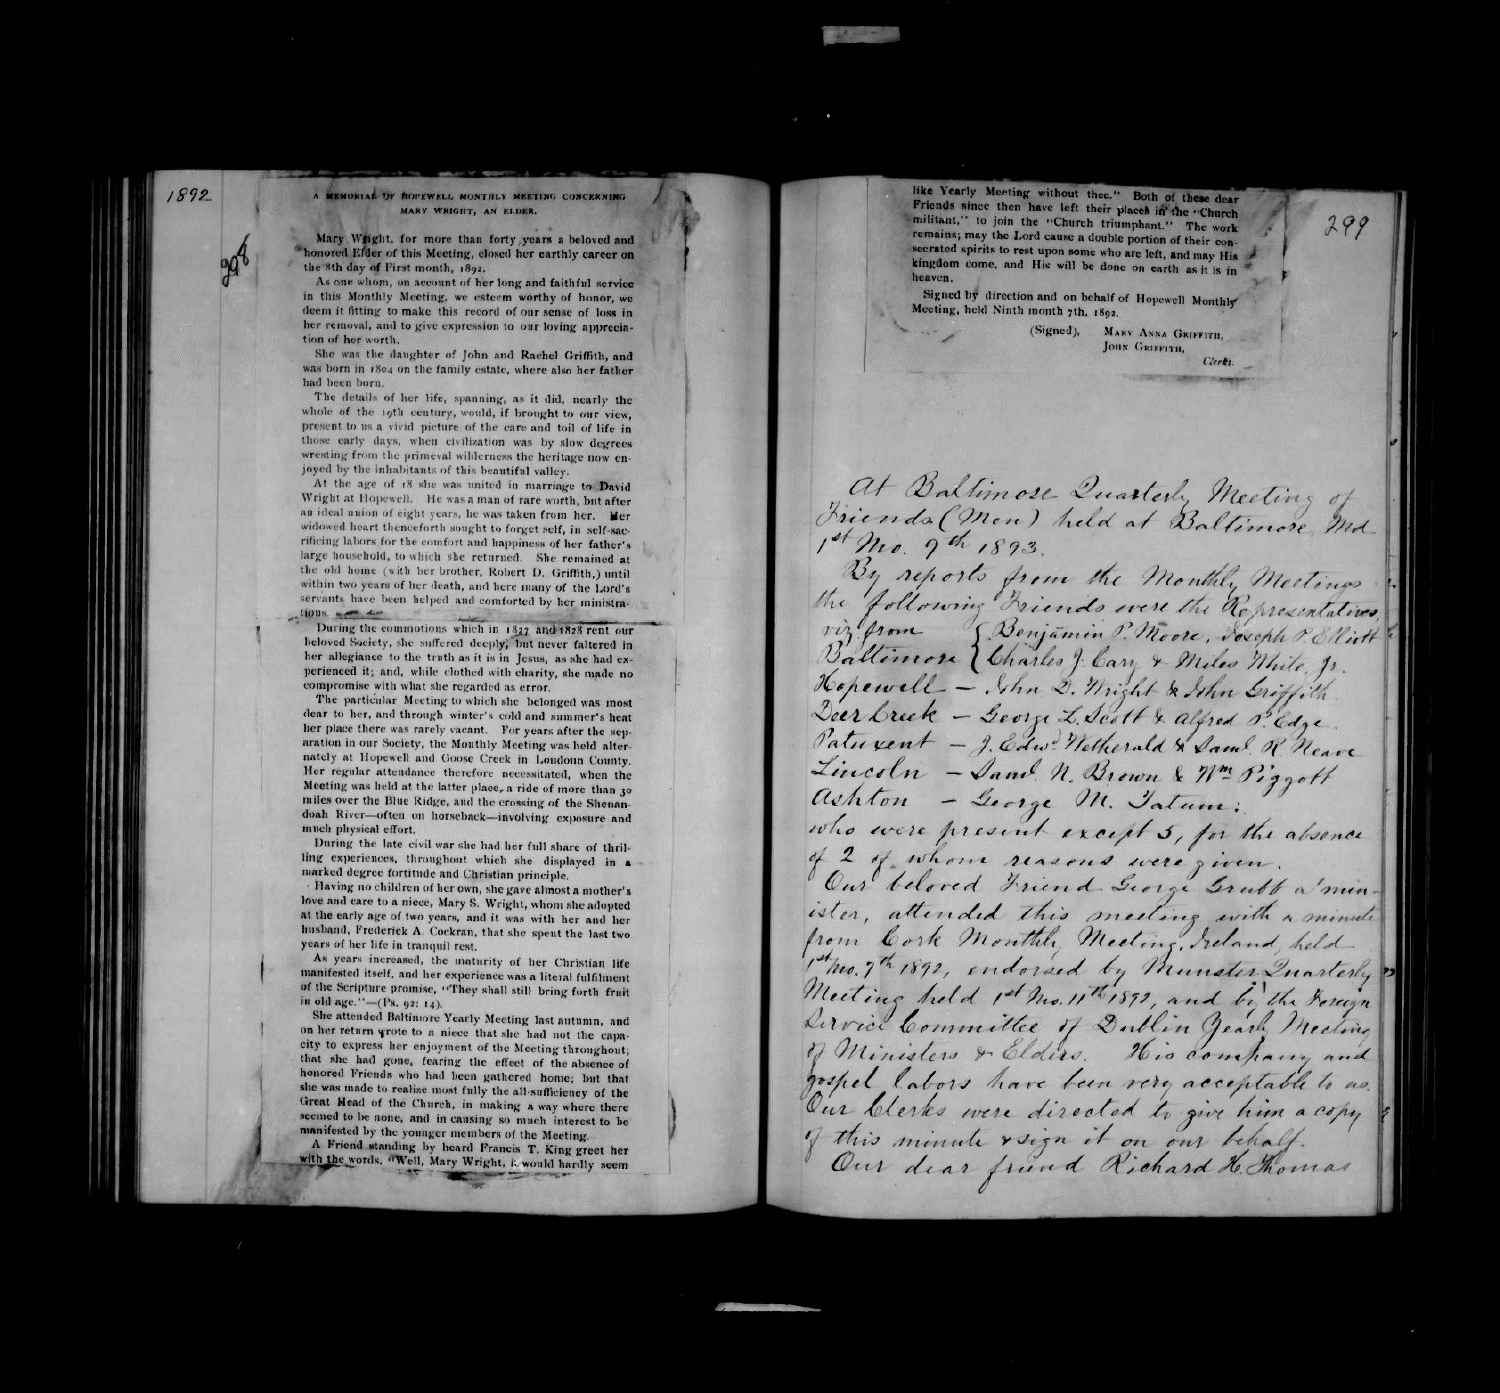 1892
298
A MEMORIAL OF HOPEWELL MONTHLY MEETING CONCERNING
MARY WRIGHT, AN ELDER.
Mary Wright, for more than forty years a beloved and
honored Elder of this Meeting, closed her earthly career on
the 8th day of First month, 1892.
As one whom, on account of her long and faithful service
in this Monthly Meeting, we esteem worthy of honor, we
deem it fitting to make this record of our sense of loss in
her removal, and to give expression to our loving apprecia-
tion of her worth.
She was the daughter of John and Rachel Griffith, and
was born in 1804 on the family estate, where also her father
had been born.
The details of her life, spanning, as it did, nearly the
whole of the 19th century, would, if brought to our view,
present to us a vivid picture of the care and toil of life in
those early days, when civilization was by slow degrees
wresting from the primeval wilderness the heritage now en-
joyed by the inhabitants of this beautiful valley.
At the age of 18 she was united in marriage to David
Wright at Hopewell. He was a man of rare worth, but after
an ideal union of eight years, he was taken from her. Her
widowed heart thenceforth sought to forget self, in self-sac-
rificing labors for the comfort and happiness of her father's
large household, to which she returned. She remained at
the old home (with her brother, Robert D. Griffith,) until
within two years of her death, and here many of the Lord's
servants have been helped and comforted by her ministra-
tions.
During the commotions which in 1827 and 1828 rent our
beloved Society, she suffered deeply, but never faltered in
her allegiance to the truth as it is in Jesus, as she had ex-
perienced it; and, while clothed with charity, she made no
compromise with what she regarded as error.
The particular Meeting to which she belonged was most
dear to her, and through winter's cold and summer's heat
her place there was rarely vacant. For years after the sep-
aration in our Society, the Monthly Meeting was held alter-
nately at Hopewell and Goose Creek in Loudoun County.
Her regular attendance therefore necessitated, when the
Meeting was held at the latter place, a ride of more than 30
miles over the Blue Ridge, and the crossing of the Shenan-
doah River—often on horseback—involving exposure and
much physical effort.
During the late civil war she had her full share of thril-
ling experiences, throughout which she displayed in a
marked degree fortitude and Christian principle.
Having no children of her own, she gave almost a mother's
love and care to a niece, Mary S. Wright, whom she adopted
at the early age of two years, and it was with her and her
husband, Frederick A. Cockran, that she spent the last two
years of her life in tranquil rest.
As years increased, the maturity of her Christian life
manifested itself, and her experience was a literal fulfilment
of the Scripture promise, "They shall still bring forth fruit
in old age."—(Ps. 92: 14).
She attended Baltimore Yearly Meeting last autumn, and
on her return wrote to a niece that she had not the capa-
city to express her enjoyment of the Meeting throughout;
that she had gone, fearing the effect of the absence of
honored Friends who had been gathered home; but that
she was made to realize most fully the all-sufficiency of the
Great Head of the Church, in making a way where there
seemed to be none, and in causing so much interest to be
manifested by the younger members of the Meeting.
A Friend standing by heard Francis T. King greet her
with the words, "Well, Mary Wright, it would hardly seem
299
like Yearly Meeting without thee." Both of these dear
Friends since then have left their places in the "Church
militant," to join the "Church triumphant." The work
remains; may the Lord cause a double portion of their con-
secrated spirits to rest upon some who are left, and may His
kingdom come, and His will be done on earth as it is in
heaven.
Signed by direction and on behalf of Hopewell Monthly
Meeting, held Ninth month 7th, 1892.
(Signed), MARY ANNA GRIFFITH,
JOHN GRIFFITH,
Clerks.
At Baltimore Quarterly Meeting of
Friends (Men) held at Baltimore, Md.
1st Mo. 9th 1893.
By reports from the Monthly Meetings
the following Friends were the Representatives,
viz from { Benjamin P. Moore, Joseph P. Elliott
Baltimore { Charles J. Cary & Miles White, Jr.
Hopewell — John D. Wright & John Griffith
Deer Creek — George L. Scott & Alfred P. Edge
Patuxent — J. Edwd Wetherald & Saml. R Neave
Lincoln — Saml. N. Brown & Wm Piggott
Ashton — George M. Tatum:
who were present except 5, for the absence
of 2 of whom reasons were given.
Our beloved Friend George Grubb a min-
ister, attended this meeting with a minute
from Cork Monthly Meeting, Ireland, held
1st Mo. 7th 1892, endorsed by Munster Quarterly
Meeting held 1st Mo. 11th 1892, and by the Foreign
Service Committee of Dublin Yearly Meeting
of Ministers & Elders. His company and
gospel labors have been very acceptable to us.
Our Clerks were directed to give him a copy
of this minute & sign it on our behalf.
Our dear friend Richard H. Thomas